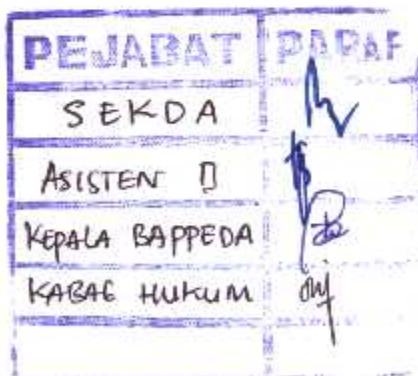 PEJABAT PARAF
SEKDA
ASISTEN II
KEPALA BAPPEDA
KABAG HUKUM